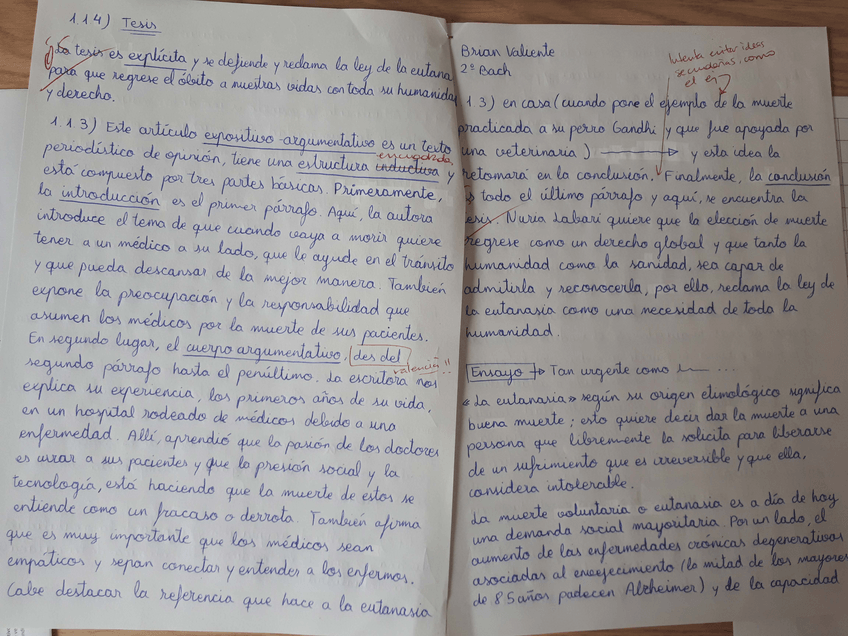 1.1.4) Tesis
La tesis es explícita y se defiende y reclama la ley de la eutana
para que regrese el óbito a nuestras vidas con toda su humanidad
y derecho.
1.1.3) Este artículo expositivo-argumentativo es un texto
periodístico de opinión, tiene una estructura inductiva y
encuadrada,
está compuesto por tres partes básicas. Primeramente,
la introducción es el primer párrafo. Aquí, la autora
introduce el tema de que cuando vaya a morir quiere
tener a un médico a su lado, que le ayude en el tránsito
y que pueda descansar de la mejor manera. También
expone la preocupación y la responsabilidad que
asumen los médicos por la muerte de sus pacientes.
En segundo lugar, el cuerpo argumentativo, des del
valencià!!
segundo párrafo hasta el penúltimo. La escritora nos
explica su experiencia, los primeros años de su vida,
en un hospital rodeado de médicos debido a una
enfermedad. Allí, aprendió que la pasión de los doctores
es curar a sus pacientes y que la presión social y la
tecnología, está haciendo que la muerte de estos se
entiende como un fracaso o derrota. También afirma
que es muy importante que los médicos sean
empáticos y sepan conectar y entender a los enfermos.
Cabe destacar la referencia que hace a la eutanasia
Brian Valiente
2º Bach
Intenta evitar ideas
secundarias, como
el ej
1.3) en casa (cuando pone el ejemplo de la muerte
practicada a su perro Gandhi y que fue apoyada por
una veterinaria) y esta idea la
retomará en la conclusión. Finalmente, la conclusión
es todo el último párrafo y aquí, se encuentra la
tesis. Nuria Labari quiere que la elección de muerte
regrese como un derecho global y que tanto la
humanidad como la sanidad, sea capaz de
admitirla y reconocerla, por ello, reclama la ley de
la eutanasia como una necesidad de toda la
humanidad.
Ensayo → Tan urgente como ...
«La eutanasia» según su origen etimológico significa
buena muerte; esto quiere decir dar la muerte a una
persona que libremente la solicita para liberarse
de un sufrimiento que es irreversible y que ella,
considera intolerable.
La muerte voluntaria o eutanasia es a día de hoy
una demanda social mayoritaria. Por un lado, el
aumento de las enfermedades crónicas degenerativas
asociadas al envejecimiento (la mitad de los mayores
de 85 años padecen Alzheimer) y de la capacidad